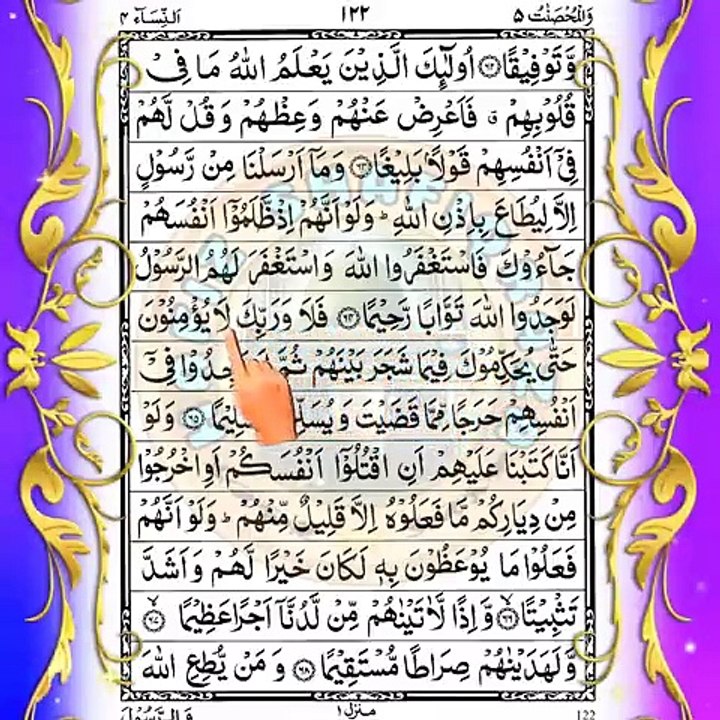 وَالْمُحْصَنٰتُ ٥ ١٢٢ اَلنِّسَآء ٤
وَّتَوْفِيْقًا ۝٦٢ اُولٰٓئِكَ الَّذِيْنَ يَعْلَمُ اللّٰهُ مَا فِيْ
قُلُوْبِهِمْ ۗ فَاَعْرِضْ عَنْهُمْ وَعِظْهُمْ وَقُلْ لَّهُمْ
فِيْٓ اَنْفُسِهِمْ قَوْلًاۢ بَلِيْغًا ۝٦٣ وَمَآ اَرْسَلْنَا مِنْ رَّسُوْلٍ
اِلَّا لِيُطَاعَ بِاِذْنِ اللّٰهِ ؕ وَلَوْ اَنَّهُمْ اِذْ ظَّلَمُوْٓا اَنْفُسَهُمْ
جَآءُوْكَ فَاسْتَغْفَرُوا اللّٰهَ وَاسْتَغْفَرَ لَهُمُ الرَّسُوْلُ
لَوَجَدُوا اللّٰهَ تَوَّابًا رَّحِيْمًا ۝٦٤ فَلَا وَرَبِّكَ لَا يُؤْمِنُوْنَ
حَتّٰى يُحَكِّمُوْكَ فِيْمَا شَجَرَ بَيْنَهُمْ ثُمَّ فِيْٓ
اَنْفُسِهِمْ حَرَجًا مِّمَّا قَضَيْتَ وَيُسَلِّمُوْا تَسْلِيْمًا ۝٦٥ وَلَوْ
اَنَّا كَتَبْنَا عَلَيْهِمْ اَنِ اقْتُلُوْٓا اَنْفُسَكُمْ اَوِ اخْرُجُوْا
مِنْ دِيَارِكُمْ مَّا فَعَلُوْهُ اِلَّا قَلِيْلٌ مِّنْهُمْ ؕ وَلَوْ اَنَّهُمْ
فَعَلُوْا مَا يُوْعَظُوْنَ بِهٖ لَكَانَ خَيْرًا لَّهُمْ وَاَشَدَّ
تَثْبِيْتًا ۝٦٦ وَّاِذًا لَّاٰتَيْنٰهُمْ مِّنْ لَّدُنَّآ اَجْرًا عَظِيْمًا ۝٦٧
وَّلَهَدَيْنٰهُمْ صِرَاطًا مُّسْتَقِيْمًا ۝٦٨ وَمَنْ يُّطِعِ اللّٰهَ
122 منزل ١ وَالرَّسُوْلَ